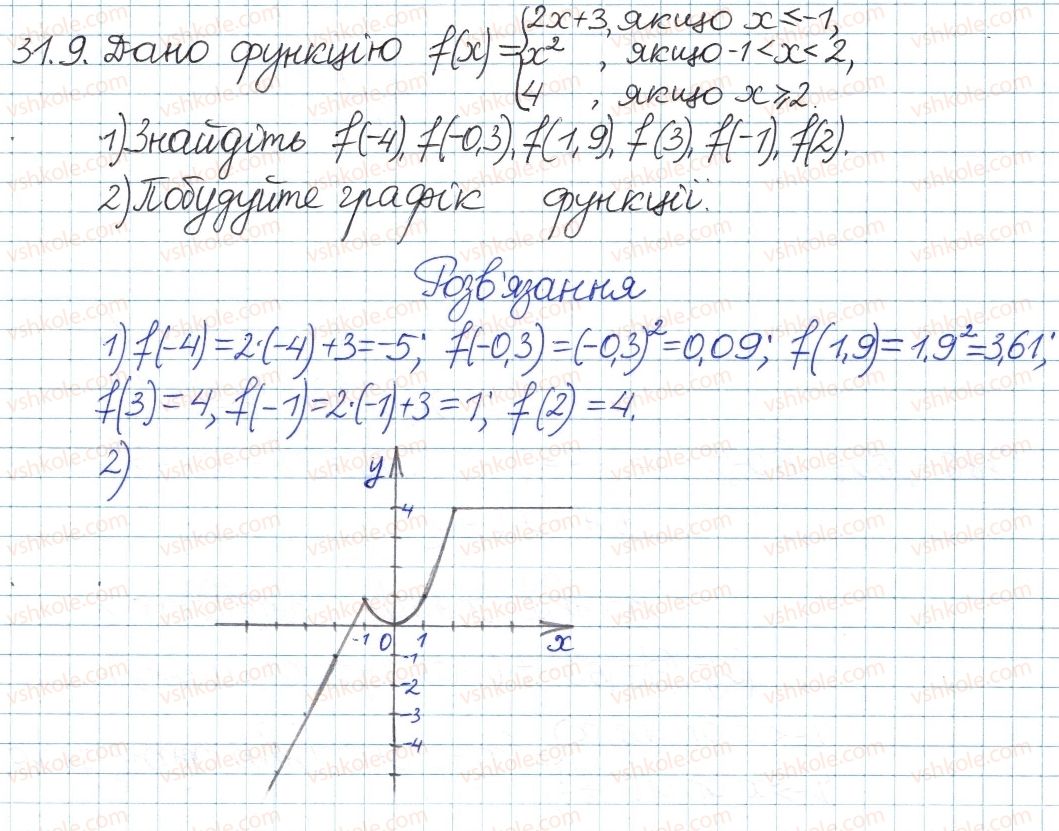 31.9. Дано функцію f(x) = { 2x+3, якщо x ≤ -1,
x² , якщо -1 < x < 2,
4 , якщо x ⩾ 2.
1) Знайдіть f(-4), f(-0,3), f(1,9), f(3), f(-1), f(2).
2) Побудуйте графік функції.
Розв'язання
1) f(-4) = 2·(-4)+3=-5; f(-0,3) = (-0,3)² = 0,09; f(1,9) = 1,9² = 3,61;
f(3) = 4, f(-1) = 2·(-1)+3 = 1; f(2) = 4.
2)
y
4
-1 0 1 x
-1
-2
-3
-4
vshkole.com